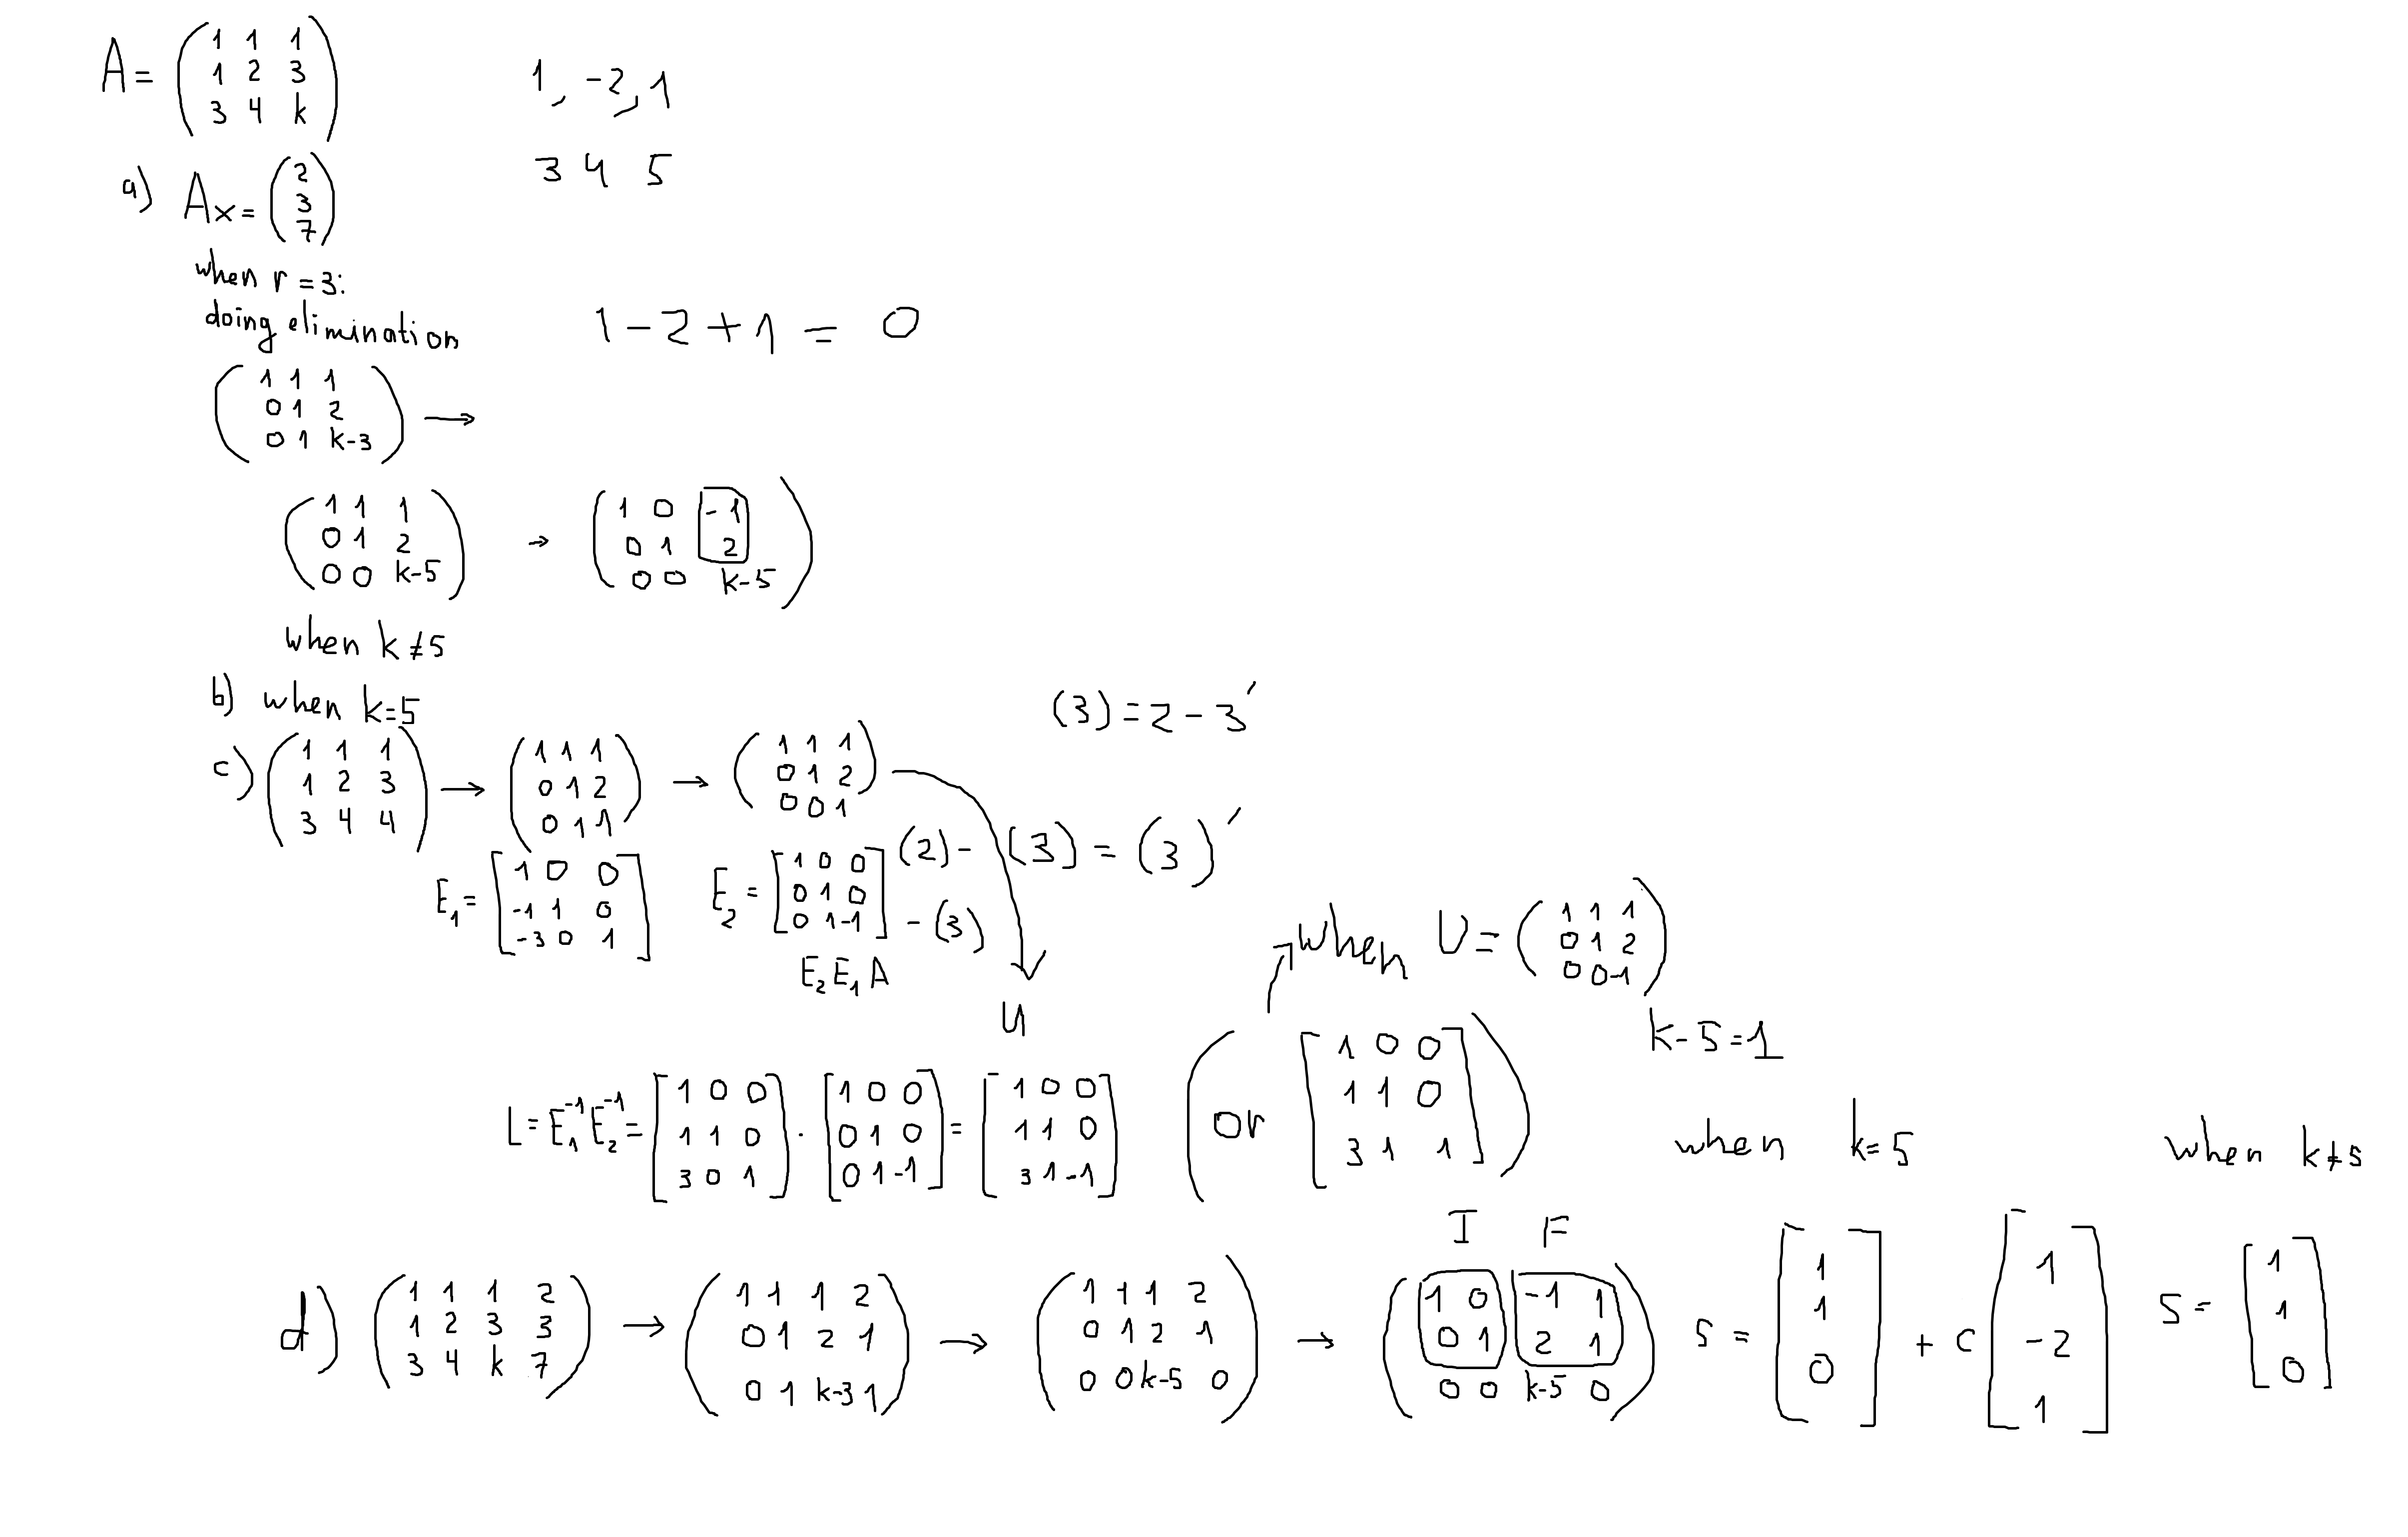 A = ( 1 1 1
1 2 3
3 4 k )
1, -2, 1
3 4 5
a) Ax = ( 2
3
7 )
when r = 3:
doing elimination
1 - 2 + 1 = 0
( 1 1 1
0 1 2
0 1 k-3 ) →
( 1 1 1
0 1 2
0 0 k-5 )
→ ( 1 0 -1
0 1 2
0 0 k-5 )
when k ≠ 5
b) when k = 5
(3) = 2 - 3'
c) ( 1 1 1
1 2 3
3 4 4 )
→ ( 1 1 1
0 1 2
0 1 1 )
→ ( 1 1 1
0 1 2
0 0 1 )
(2) - (3) = (3)'
E₁ = [ 1 0 0
-1 1 0
-3 0 1 ]
E₂ = [ 1 0 0
0 1 0
0 1 -1 ]
- (3)
E₂ E₁ A
U
when U = ( 1 1 1
0 1 2
0 0 -1 )
k - 5 = 1
L = E₁⁻¹ E₂⁻¹ = [ 1 0 0
1 1 0
3 0 1 ]
· [ 1 0 0
0 1 0
0 1 -1 ]
= [ 1 0 0
1 1 0
3 1 -1 ]
( or [ 1 0 0
1 1 0
3 1 1 ] )
when k = 5
when k ≠ 5
I F
d) ( 1 1 1 2
1 2 3 3
3 4 k 7 )
→ ( 1 1 1 2
0 1 2 1
0 1 k-3 1 )
→ ( 1 1 1 2
0 1 2 1
0 0 k-5 0 )
→ ( 1 0 -1 1
0 1 2 1
0 0 k-5 0 )
S = [ 1
1
0 ]
+ c [ 1
-2
1 ]
S = [ 1
1
0 ]